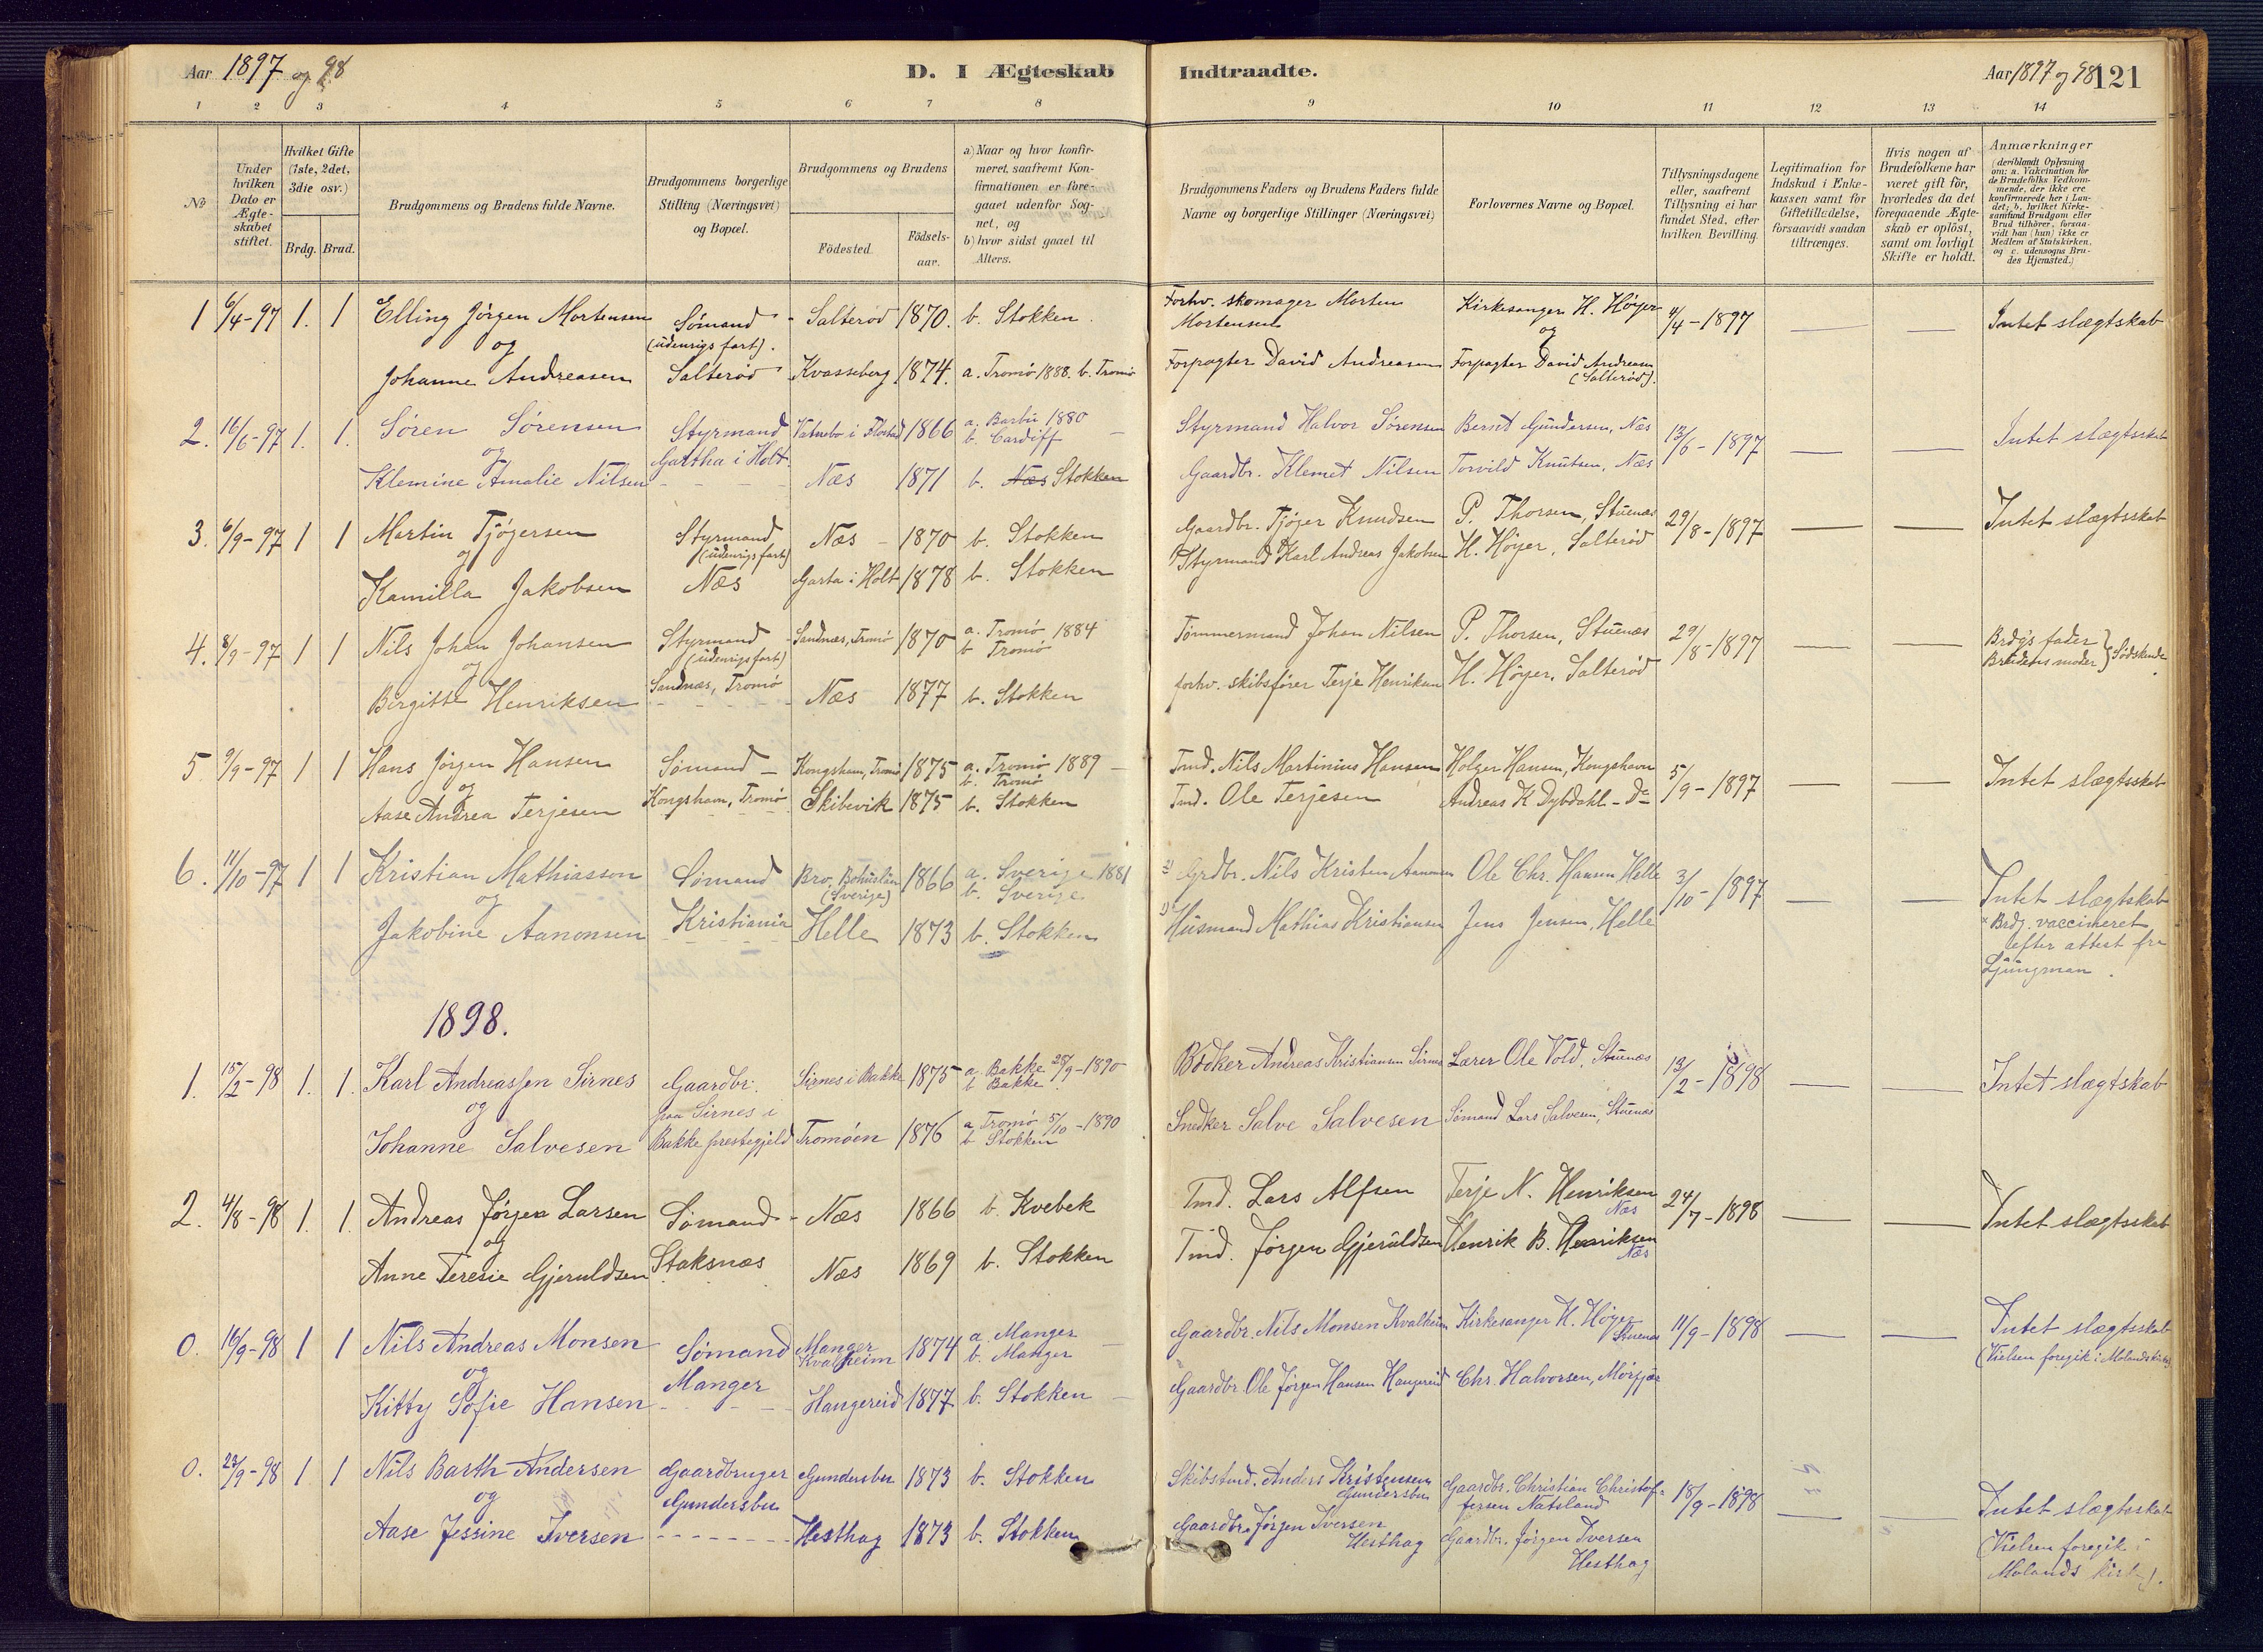 Aar 1897 og 98
D. I Ægteskab Indtraadte.
Aar 1897 og 98
121
1 2 3 4 5 6 7 8 9 10 11 12 13 14
No
Under hvilken Dato er Ægte-skabet stiftet.
Hvilket Gifte (1ste, 2det, 3die osv.)
Brdg. Brud.
Brudgommens og Brudens fulde Navne.
Brudgommens borgerlige Stilling (Næringsvei) og Bopæl.
Brudgommens og Brudens
Födested.
Födsels-aar.
a) Naar og hvor konfir-meret, saafremt Kon-firmationen er fore-gaaet udenfor Sog-net, og
b) hvor sidst gaaet til Alters.
Brudgommens Faders og Brudens Faders fulde Navne og borgerlige Stillinger (Næringsvei)
Forlovernes Navne og Bopæl.
Tillysningsdagene eller, saafremt Tillysning ei har fundet Sted, efter hvilken Bevilling.
Legitimation for Indskud i Enke-kassen samt for Giftetilladelse, forsaavidt saadan tiltrænges.
Hvis nogen af Brudefolkene har været gift för, hvorledes da det foregaaende Ægte-skab er oplöst, samt om lovligt Skifte er holdt.
Anmærkninger (deriblandt Oplysning om: a. Vakcination for de Brudefolks Vedkom-mende, der ikke ere konfirmerede her i Lan-det; b. hvilket Kirke-samfund Brudgom eller Brud tilhörer, forsaa-vidt han (hun) ikke er Medlem af Statskirken, og c. udensogns Bru-des Hjemsted.)
1 6/4-97 1. 1 Elling Jörgen Mortensen Sømand - Salterød 1870. b. Stokken. Forhv. skomager Morten Kirkesanger H. Höyer 4/4-1897 Intet slægtskab
og (udenrigs fart). Mortensen og
Johanne Andreasen Salterød Kvasseberg 1874. a. Tromö 1888. b. Tromö Forpagter David Andreasen Forpagter David Andreasen
(Salterød).
2. 16/6-97 1. 1. Søren Sørensen Styrmand Vatnebo i Flosta 1866 a. Barbu 1880 Styrmand Halvor Sørensen Bernt Gundersen, Næs 13/6-1897 Intet slægtsskab
og Gartha i Holt. b. Cardiff
Klemine Amalie Nilsen Næs 1871 b. Næs Stokken Gaardbr. Klemet Nilsen Torvild Knutsen, Næs
3. 6/9-97 1 1 Martin Tjögersen Styrmand Næs - 1870 b. Stokken Gaardbr. Tjöger Knudsen P. Thorsen, Stuenæs 29/8-1897 Intet slægtsskab
og (udenrigs fart)
Kamilla Jakobsen Næs Garta i Holt 1878 b. Stokken Styrmand Karl Andreas Jakobsen H. Höyer, Salterød
4. 8/9-97 1 1 Nils Johan Johansen Styrmand Sandnæs, Tromö 1870 a. Tromö 1884 Tømmermand Johan Nilsen P. Thorsen, Stuenæs 29/8-1897 Brdg's fader
og (udenrigsfart) b Tromö Brudens moder } Södskende
Birgitte Henriksen Sandnæs, Tromö Næs 1877 b. Stokken forhv. skibsfører Terje Henriksen H. Höyer, Salterød
5. 9/9-97 1 1 Hans Jörgen Hansen Sömand Kongshavn, Tromö 1875 a. Tromö 1889 Tmd. Nils Martinius Hansen Holger Hansen, Kongshavn 5/9-1897 Intet slægtsskab
og Kongshavn, Tromö b. Tromö
Aase Andrea Terjesen Skibevik 1875 b. Stokken Tmd. Ole Terjesen Andreas K Dybdahl - Do
6. 11/10-97 1 1 Kristian Mathiasson Sömand Bro, Bohuslän 1866 a. Sverige 1881 2) Grdbr. Nils Kristen Aanonsen Ole Chr. Hansen Helle 3/10-1897 Intet slægtskab
og (Sverige) b. Sverige × Brdg. vaccineret
Jakobine Aanonsen Kristiania Helle 1873 b. Stokken 1) Husmand Mathias Kristiansen Jens Jensen, Helle efter attest fra
Ljungman.
1898.
1. 15/2-98 1. 1. Karl Andreassen Sirnes Gaardbr. Sirnes i Bakke 1875 a. Bakke 28/9-1890 Bødker Andreas Kristiansen Sirnes Lærer Ole Vold, Stuenæs 13/2-1898 Intet slægtskab
og paa Sirnes i b Bakke
Johanne Salvesen Bakke prestegjeld Tromöen 1876 a Tromö 5/10-1890 Snedker Salve Salvesen Sömand Lars Salvesen, Stuenæs
b Stokken
2. 4/8-98 1. 1. Andreas Jörgen Larsen Sömand - Næs 1866 b. Kvebek Tmd. Lars Alfsen Terje N. Henriksen 24/7-1898 Intet slægtsskab
og Næs
Anne Teresie Gjeruldsen Staksnæs Næs 1869 b. Stokken Tmd. Jörgen Gjeruldsen Henrik B. Henriksen
Næs
0. 16/9-98 1 1 Nils Andreas Monsen Sömand Manger 1874 a. Manger Gaardbr. Nils Monsen Kvalheim Kirkesanger H. Höyer 11/9-1898 Intet slægtsskab
og Manger Kvalheim b. Manger Stuenæs (Vielsen foregik i Molands kirke)
Kitty Sofie Hansen Hangereid 1877 b. Stokken Gaardbr. Ole Jörgen Hansen Hangereid Chr. Halvorsen, Mörfjær
0. 23/9-98 1 1 Nils Barth Andersen Gaardbruger Gundersbu 1873 b. Stokken Skibstmd. Anders Kristensen Gaardbr. Christian Christof- 18/9-1898 Intet slægtsskab
og Gundersbu Gundersbu fersen Natsland
Aase Jessine Iversen Hesthag 1873 b. Stokken Gaardbr. Jörgen Iversen Gaardbr. Jörgen Iversen (Vielsen foregik i
Hesthag Hesthag Molands kirke).